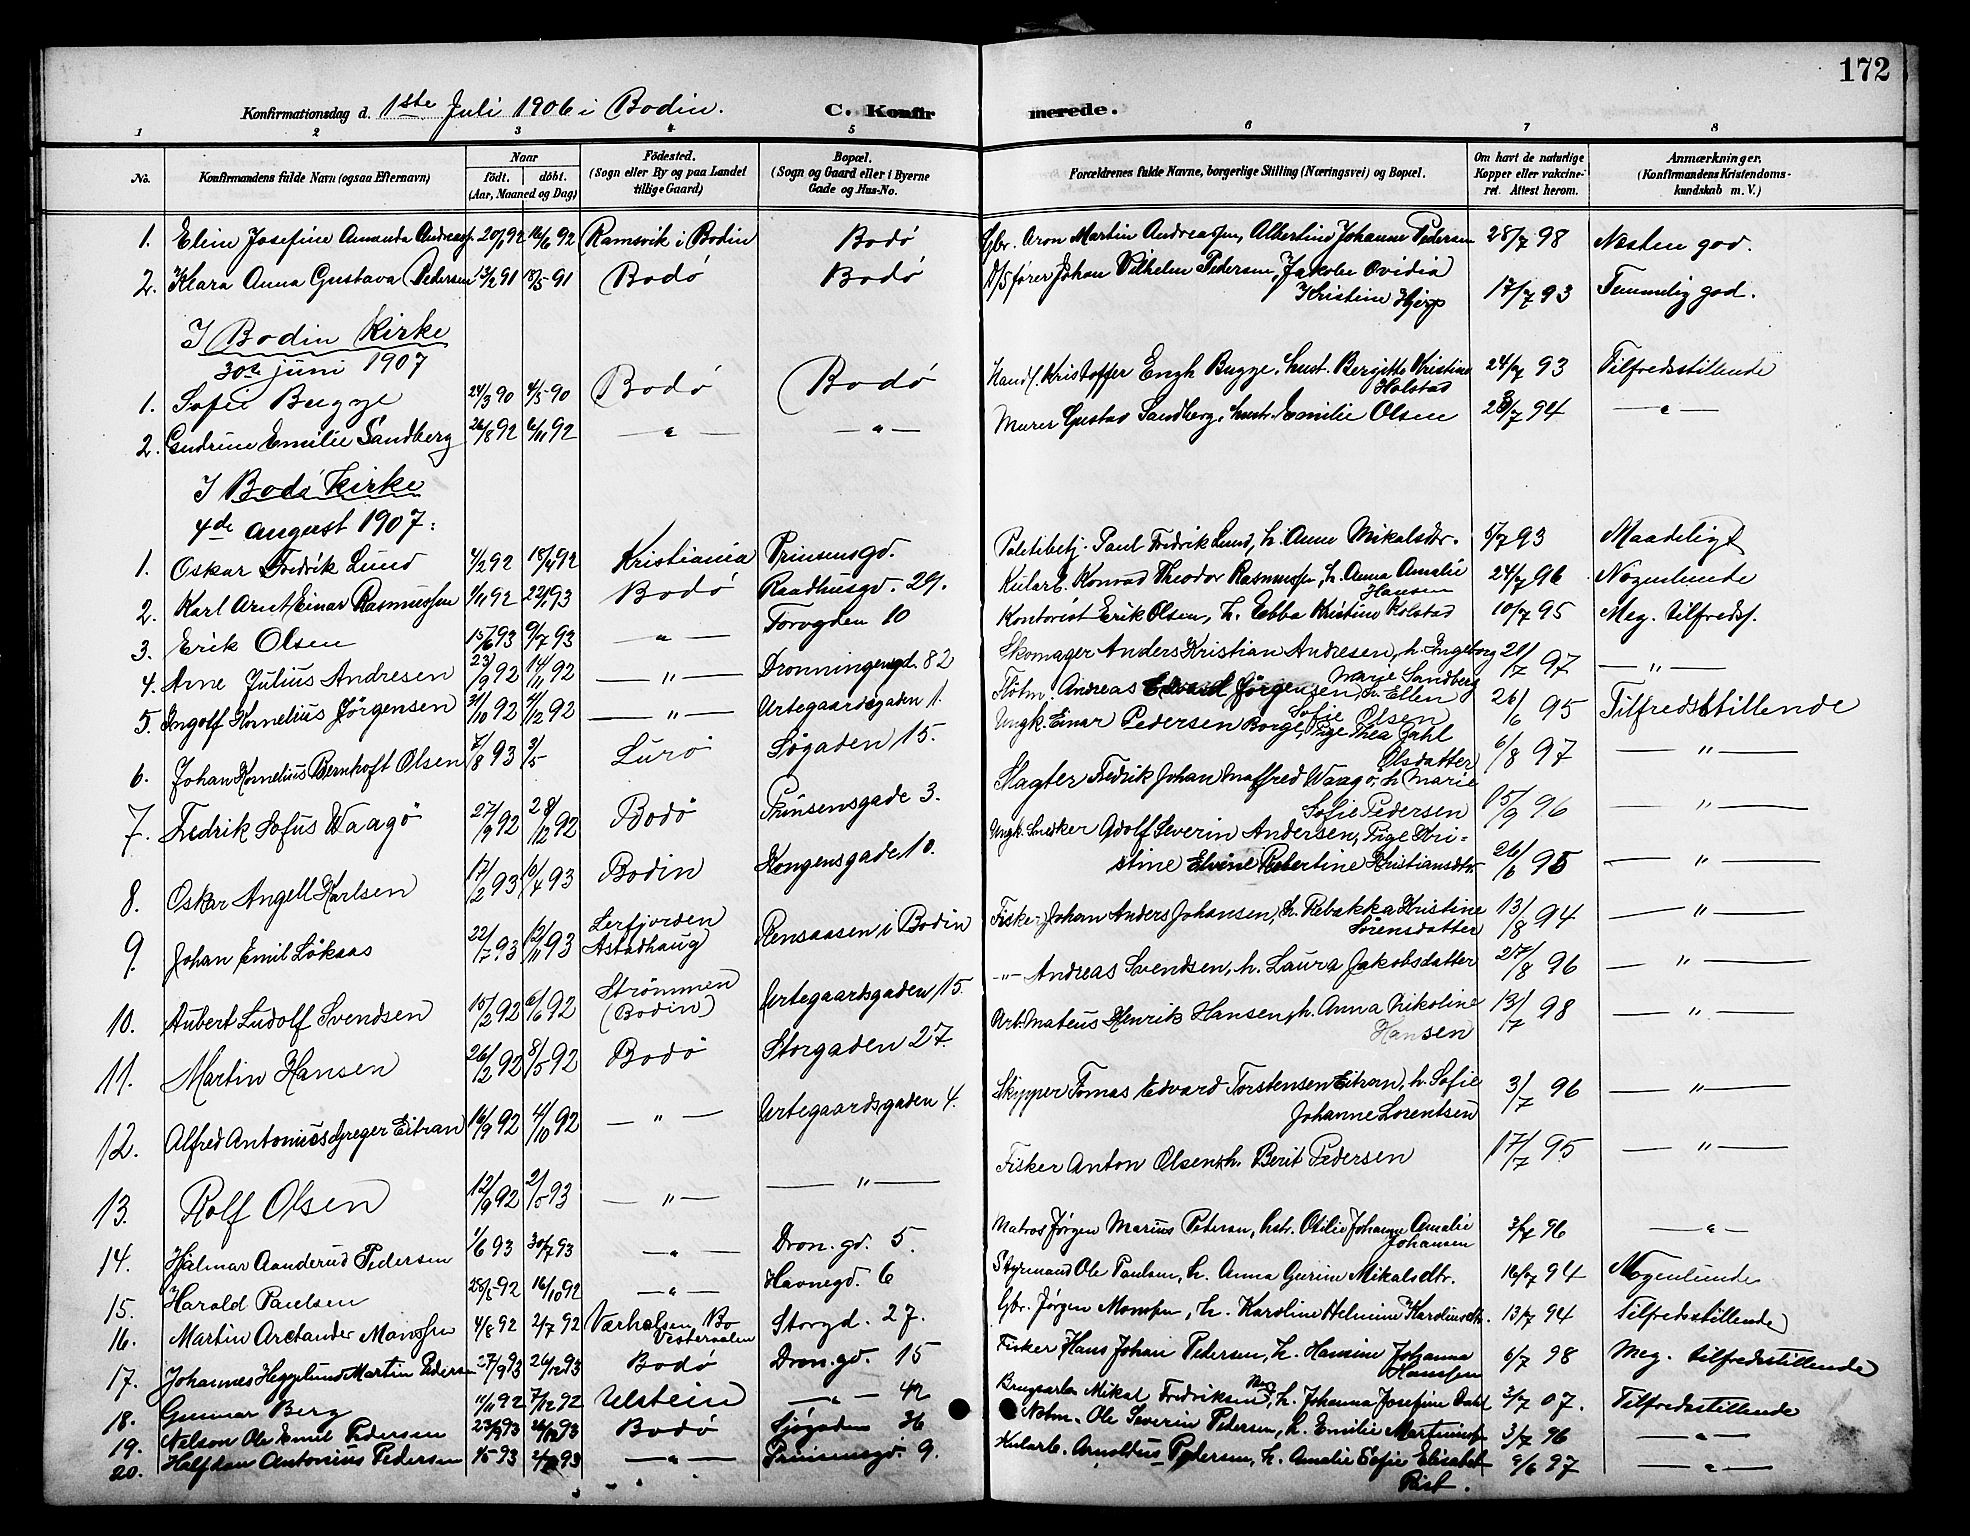 172
Konfirmationsdag d. 1ste Juli 1906 i Bodin. C. Konfirmerede.
1 2 3 4 5 6 7 8
No. Konfirmandens fulde Navn (ogsaa Efternavn) Naar født. døbt. (Aar, Maaned og Dag) Födested. (Sogn eller By og paa Landet tillige Gaard) Bopæl. (Sogn og Gaard eller i Byerne Gade og Hus-No. Forældrenes fulde Navne, borgerlige Stilling (Næringsvei) og Bopæl. Om havt de naturlige Kopper eller vakcineret. Attest herom. Anmærkninger. (Konfirmandens Kristendomskundskab m. V.)
1. Elin Josefine Amanda Andreass. 20/1 92 16/6 92 Ramsvik i Bodin Bodø Gbr. Aron Martin Andreassen, Albertine Johanne Pedersen 28/7 98 Næsten god.
2. Klara Anna Gustava Pedersen 13/2 91 18/5 91 Bodø Bodø D/S fører Johan Vilhelm Pedersen, Jakobe Ovidia Kristine 17/7 93 Temmelig god.
I Bodin Kirke
30te juni 1907
1. Sofie Bugge 24/3 90 4/5 90 Bodø Bodø Handl. Kristoffer Engh Bugge, hust. Bergitte Kristine Holstad 24/7 93 Tilfredsstillende
2. Gudrun Emilie Sandberg 26/8 92 6/11 92 — " — — " — Murer Gustav Sandberg, hust. Emilie Olsen 28/7 94 — " —
I Bodø Kirke
4de august 1907:
1. Oskar Fredrik Lund 4/2 92 18/4 92 Kristiania Prinsensgd. Politibetj. Paul Fredrik Lund, h. Anne Mikalsdr. 5/7 93 Maadeligt
2. Karl Arnt Einar Rasmussen 1/11 92 22/1 93 Bodø Raadhusgd. 29. Kularb. Konrad Theodor Rasmussen h. Anna Amalie Hansen 24/7 96 Nogenlunde
3. Erik Olsen 15/6 93 9/7 93 — " — Torvgden 10 Kontorist Erik Olsen, h. Ebba Kristine Kolstad 10/7 95 Meg. tilfredsf.
4. Arne Julius Andresen 23/9 92 14/11 92 — " — Dronningensgd. 82 Skomager Anders Kristian Andresen, h. Ingeborg Marie Sandberg 21/7 97 — " —
5. Ingolf Kornelius Jørgensen 31/10 92 4/12 92 — " — Urtegaardsgaden 1. Andreas Edvard Jørgensen, h. Ellen Sofie Olsen 26/6 95 Tilfredsstillende
6. Johan Kornelius Bernhoft Olsen 7/8 93 3/5 Lurø Søgaden 15. Ungk. Einar Pedersen Borge, Pige Thea Olsdatter 6/8 97 — " —
7. Fredrik Sofus Waagø 27/9 92 28/12 92 Bodø Prinsensgade 3. Slagter Fredrik Johan Manfred Waagø, h. Marie Sofie Pedersen 15/9 96 — " —
8. Oskar Angell Karlsen 17/2 93 10/4 93 Bodin Kongensgade 10. Ungk. Snedker Adolf Severin Andersen, Pige Kristine Elvine Robertine Kristiansdtr. 26/6 95 — " —
9. Johan Emil Løkaas 22/7 93 12/11 93 Lerfjorden Astadhaug Rensaasen i Bodin Fisker Johan Anders Johansen, h. Rebekka Kristine Sørensdatter 13/8 94 — " —
10. Aubert Ludolf Svendsen 15/2 92 6/6 92 Strømmen (Bodin) Urtegaardsgaden 15. — " — Andreas Svendsen, h. Laura Jakobsdatter 27/8 96 — " —
11. Martin Hansen 26/2 92 8/5 92 Bodø Storgaden 27. Arb. Mateus Henrik Hansen, h. Anna Nikoline Hansen 13/7 98 — " —
12. Alfred Antonius Eitran 16/9 92 4/10 92 — " — Urtegaardsgaden 4. Skipper Tomas Edvard Torstensen Eitran, h. Sofie Johanne Lorentsen 3/7 96 — " —
13. Rolf Olsen 12/9 92 2/5 93 — " — — " — Fisker Anton Olsen, h. Berit Pedersen 17/7 95 — " —
14. Hjalmar Aanderud Pedersen 1/6 93 30/7 93 — " — Dron. gd. 5. Matros Jørgen Marius Petersen, hstr. Otilie Johanne Amalie Johansen 3/7 96 — " —
15. Harald Paulsen 28/5 92 16/10 92 — " — Havnegd. 6 Styrmand Ole Paulsen, h. Anna Gurine Mikalsdtr. 16/7 94 Nogenlunde
16. Martin Arctander Monssen 4/8 92 2/7 92 Bo Vesteraalen Storgd. 27. Gbr. Jørgen Monssen, h. Karoline Helmine Karoliusdtr. 13/7 94 Tilfredsstillende
17. Johannes Heggelund Martin Pedersen 27/9 93 26/12 93 Bodø Dron. gd. 15 Fisker Hans Johan Pedersen, h. Hansine Johanna Hanssen 6/7 98 Meg. tilfredsstillende
18. Gunnar Berg 11/11 92 7/12 92 Ulstein — " — 42 Brugsarb. Mikal Fredriksen Berg, h. Johanna Josefine Dahl 3/7 07. Tilfredsstillende
19. Nelson Ole Emil Pedersen 23/9 93 26/12 93 Bodø Sjøgaden 36 Ole Severin Petersen, h. Emilie Martinussen 3/7 96 — " —
20. Halfdan Antonius Pedersen 1/5 93 93 — " — Prinsensgd. 9. Kularb. Arnoldus Pedersen, h. Amalie Sofie Elisabet Rist. 9/6 97 — " —